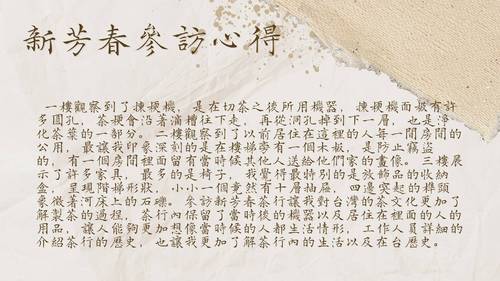 新芳春參訪心得
一樓觀察到了揀梗機，是在切茶之後所用機器，揀梗機面板有許
多圓孔，茶梗會沿著滿槽往下走，再從洞孔掉到下一層，也是淨
化茶葉的一部分。二樓觀察到了以前居住在這裡的人每一間房間的
公用，最讓我印象深刻的是在樓梯旁有一個木板，是防止竊盜
的，有一個房間裡面留有當時候其他人送給他們家的畫像。三樓展
示了許多家具，最多的是椅子，我覺得最特別的是放飾品的收納
盒，呈現階梯形狀，小小一個竟然有十層抽屜，四邊突起的榫頭
象徵著河床上的石礫。參訪新芳春茶行讓我對台灣的茶文化更加了
解製茶的過程，茶行內保留了當時後的機器以及居住在裡面的人的
用品，讓人能夠更加想像當時候的人都生活情形，工作人員詳細的
介紹茶行的歷史，也讓我更加了解茶行內的生活以及在台歷史。